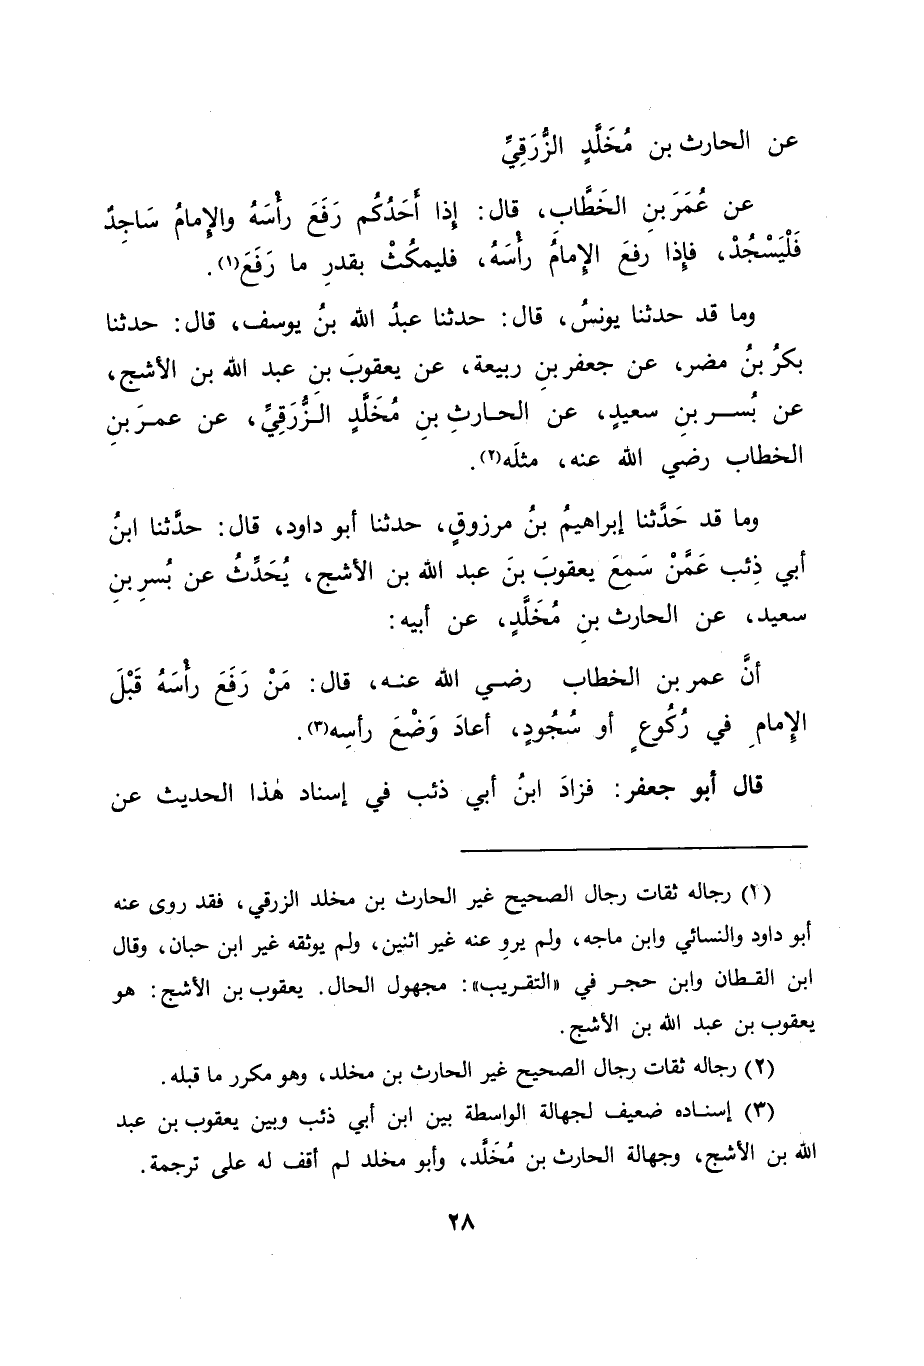 عن الحارث بن مُخَلَّدٍ الزُّرَقِيِّ
عن عُمَرَ بنِ الخَطَّابِ، قال: إذا أَحَدُكُم رَفَعَ رأْسَهُ والإِمامُ سَاجِدٌ
فَلْيَسْجُدْ، فإذا رفعَ الإِمامُ رأْسَهُ، فليمكُثْ بقدرِ ما رَفَعَ(١).
وما قد حدثنا يونسُ، قال: حدثنا عبدُ الله بنُ يوسف، قال: حدثنا
بكرُ بنُ مضر، عن جعفر بنِ ربيعة، عن يعقوبَ بنِ عبد الله بن الأشج،
عن بُسـر بنِ سعيدٍ، عن الحـارثِ بنِ مُخَلَّدٍ الـزُّرَقِيِّ، عن عمـرَ بنِ
الخطاب رضي الله عنه، مثلَه(٢).
وما قد حَدَّثنا إبراهيمُ بنُ مرزوقٍ، حدثنا أبو داود، قال: حدَّثنا ابنُ
أبي ذِئب عَمَّنْ سَمِعَ يعقوبَ بنَ عبد الله بن الأشج، يُحَدِّثُ عن بُسرِ بنِ
سعيد، عن الحارث بنِ مُخَلَّدٍ، عن أبيه:
أنَّ عمر بن الخطاب رضـي الله عنـه، قال: مَنْ رَفَعَ رأْسَهُ قَبْلَ
الإِمامِ في رُكُوعٍ أو سُجُودٍ، أعادَ وَضْعَ رأسِه(٣).
قال أبو جعفر: فزادَ ابنُ أبي ذئب في إسناد هٰذا الحديث عن
(١) رجاله ثقات رجال الصحيح غير الحارث بن مخلد الزرقي، فقد روى عنه
أبو داود والنسائي وابن ماجه، ولم يروِ عنه غير اثنين، ولم يوثقه غير ابن حبان، وقال
ابن القـطان وابن حجـر في «التقـريب»: مجهول الحال. يعقوب بن الأشج: هو
يعقوب بن عبد الله بن الأشج.
(٢) رجاله ثقات رجال الصحيح غير الحارث بن مخلد، وهو مكرر ما قبله.
(٣) إسنـاده ضعيف لجهالة الواسطة بين ابن أبي ذئب وبين يعقوب بن عبد
الله بن الأشج، وجهالة الحارث بن مُخَلَّد، وأبو مخلد لم أقف له على ترجمة.
٢٨